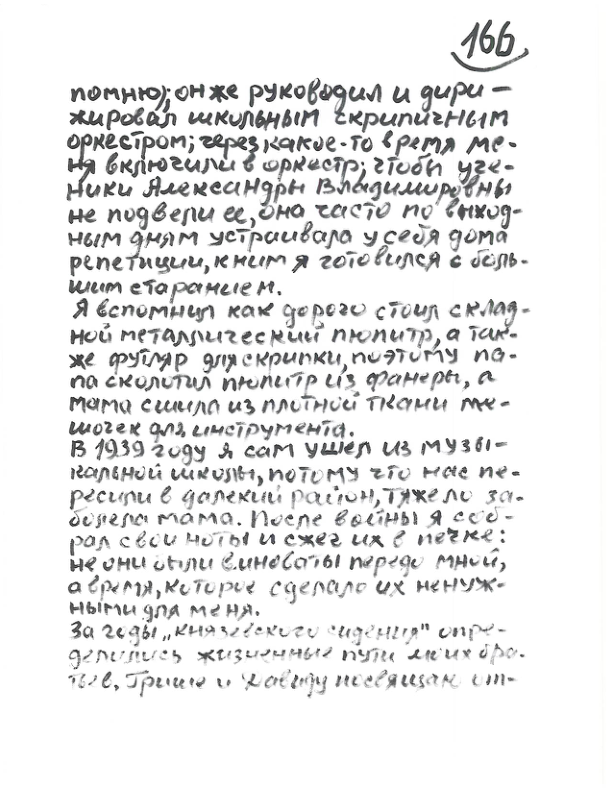 166
помню); он же руководил и дири-
жировал школьным скрипичным
оркестром; через какое-то время ме-
ня включили в оркестр; чтобы уче-
ники Александры Владимировны
не подвели ее, она часто по выход-
ным дням устраивала у себя дома
репетиции, к ним я готовился с боль-
шим старанием.
Я вспомнил как дорого стоил склад-
ной металлический пюпитр, а так-
же футляр для скрипки, поэтому па-
па сколотил пюпитр из фанеры, а
мама сшила из плотной ткани ме-
шочек для инструмента.
В 1939 году я сам ушел из музы-
кальной школы, потому что нас пе-
ресилили в далекий район, тяжело за-
болела мама. После войны я соб-
рал свои ноты и сжег их в печке:
не они были виноваты передо мной,
а время, которое сделало их ненуж-
ными для меня.
За годы „князевского сидения" опре-
делились жизненные пути моих бра-
тьев, Грише и Давиду посвящаю от-